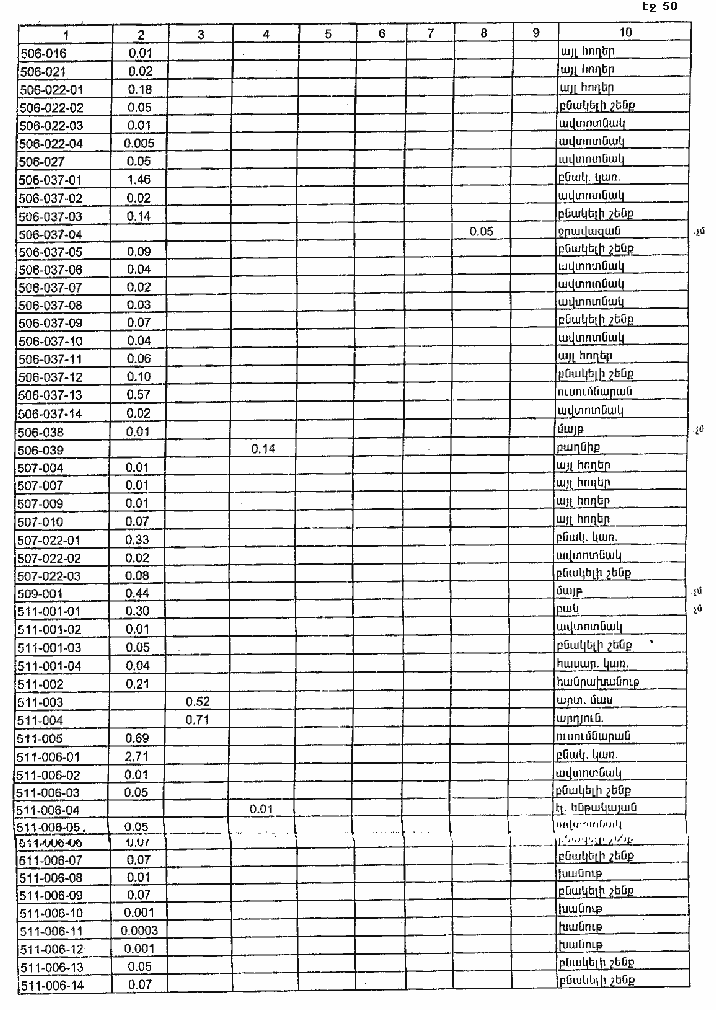 Էջ 50
1 2 3 4 5 6 7 8 9 10
506-016 0.01 այլ հողեր
506-021 0.02 այլ հողեր
506-022-01 0.18 այլ հողեր
506-022-02 0.05 բնակելի շենք
506-022-03 0.01 ավտոտնակ
506-022-04 0.005 ավտոտնակ
506-027 0.05 ավտոտնակ
506-037-01 1.46 բնակ. կառ.
506-037-02 0.02 ավտոտնակ
506-037-03 0.14 բնակելի շենք
506-037-04 0.05 ջրավազան չմ
506-037-05 0.09 բնակելի շենք
506-037-06 0.04 ավտոտնակ
506-037-07 0.02 ավտոտնակ
506-037-08 0.03 ավտոտնակ
506-037-09 0.07 բնակելի շենք
506-037-10 0.04 ավտոտնակ
506-037-11 0.06 այլ հողեր
506-037-12 0.10 բնակելի շենք
506-037-13 0.57 ուսումնարան
506-037-14 0.02 ավտոտնակ
506-038 0.01 մայթ չմ
506-039 0.14 բաղնիք
507-004 0.01 այլ հողեր
507-007 0.01 այլ հողեր
507-009 0.01 այլ հողեր
507-010 0.07 այլ հողեր
507-022-01 0.33 բնակ. կառ.
507-022-02 0.02 ավտոտնակ
507-022-03 0.08 բնակելի շենք
509-001 0.44 մայթ չմ
511-001-01 0.30 բակ չմ
511-001-02 0.01 ավտոտնակ
511-001-03 0.05 բնակելի շենք
511-001-04 0.04 հասար. կառ.
511-002 0.21 հանրախանութ
511-003 0.52 արտ. մաս
511-004 0.71 արդյուն.
511-005 0.69 ուսումնարան
511-006-01 2.71 բնակ. կառ.
511-006-02 0.01 ավտոտնակ
511-006-03 0.05 բնակելի շենք
511-006-04 0.01 էլ. ենթակայան
511-006-05. 0.05
511-006-06 0.07
511-006-07 0.07 բնակելի շենք
511-006-08 0.01 խանութ
511-006-09 0.07 բնակելի շենք
511-006-10 0.001 խանութ
511-006-11 0.0003 խանութ
511-006-12 0.001 խանութ
511-006-13 0.05 բնակելի շենք
511-006-14 0.07 բնակելի շենք